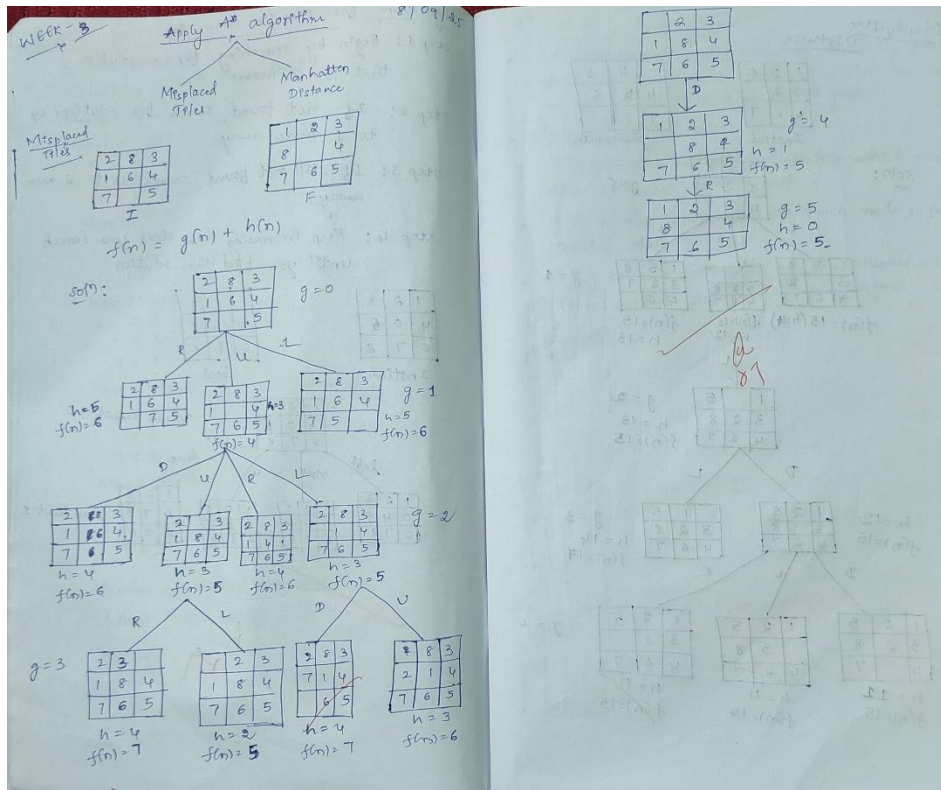 WEEK-3
8/09/25
Apply A* algorithm
Misplaced Tiles
Manhatten Distance
Misplaced Tiles
2 8 3
1 6 4
7 5
I
1 2 3
8 4
7 6 5
F
f(n) = g(n) + h(n)
soln:
2 8 3
1 6 4
7 5
g=0
R U L
2 8 3
1 6 4
7 5
h=5
f(n)=6
2 8 3
1 4
7 6 5
h=3
f(n)=4
2 8 3
1 6 4
7 5
g=1
h=5
f(n)=6
D U R L
2 8 3
1 6 4
7 6 5
h=4
f(n)=6
2 3
1 8 4
7 6 5
h=3
f(n)=5
2 8 3
1 4
7 6 5
h=4
f(n)=6
2 8 3
1 4
7 6 5
g=2
h=3
f(n)=5
R L D U
g=3
2 3
1 8 4
7 6 5
h=4
f(n)=7
2 3
1 8 4
7 6 5
h=2
f(n)=5
2 8 3
7 1 4
6 5
h=4
f(n)=7
8 3
2 1 4
7 6 5
h=3
f(n)=6
2 3
1 8 4
7 6 5
D
1 2 3
8 4
7 6 5
g=4
h=1
f(n)=5
R
1 2 3
8 4
7 6 5
g=5
h=0
f(n)=5